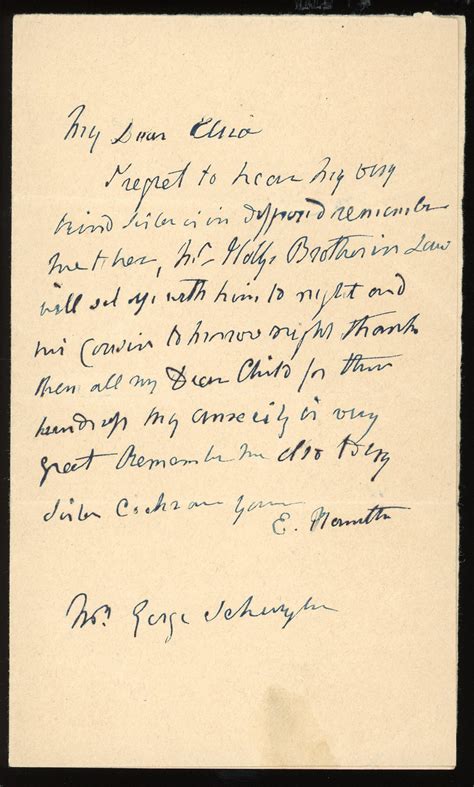 My Dear Eliza
I regret to hear my very
kind Sister is in disposed remember
me to her, Mr Brother in Law
will set up with him to night and
his Cousin to morrow night thank
them all my Dear Child for their
kindness my anxiety is very
great Remember me also to my
Sister Cochran yours
E. Hamilton
Mrs George Schuyler